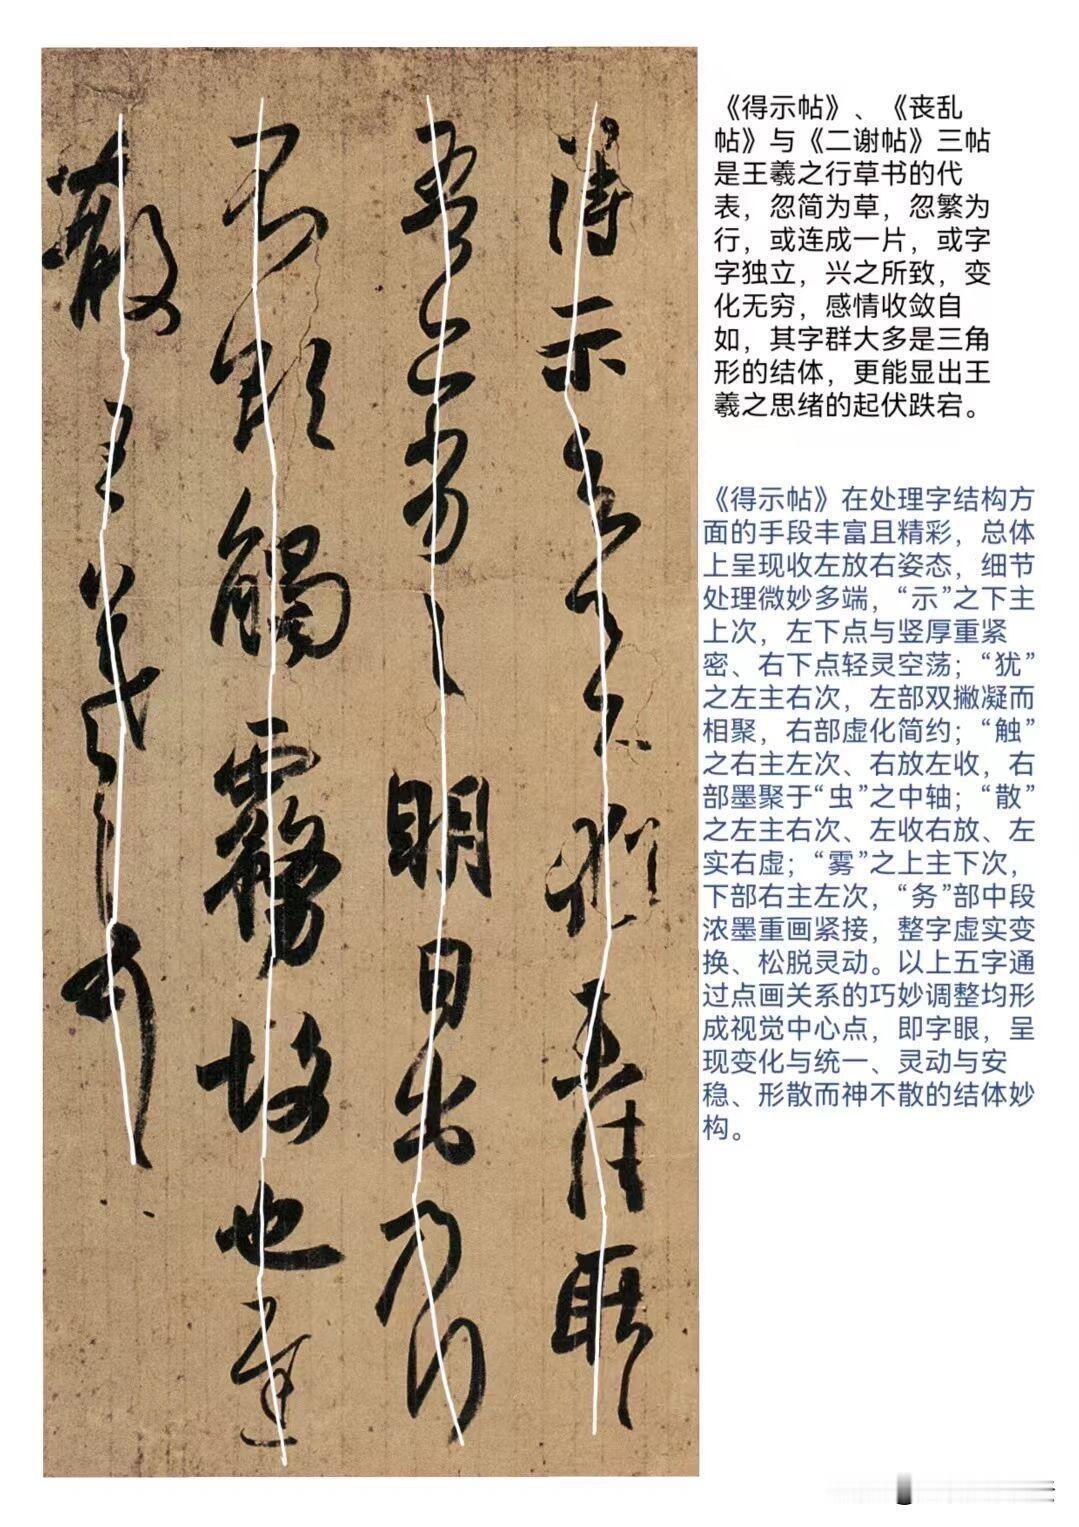 得示知足下猶未佳耿々
吾亦劣々明日出乃行
不欲觸霧故也遲
散王羲之頓首
《得示帖》、《丧乱
帖》与《二谢帖》三帖
是王羲之行草书的代
表，忽简为草，忽繁为
行，或连成一片，或字
字独立，兴之所致，变
化无穷，感情收敛自
如，其字群大多是三角
形的结体，更能显出王
羲之思绪的起伏跌宕。
《得示帖》在处理字结构方
面的手段丰富且精彩，总体
上呈现收左放右姿态，细节
处理微妙多端，“示”之下主
上次，左下点与竖厚重紧
密、右下点轻灵空荡；“犹”
之左主右次，左部双撇凝而
相聚，右部虚化简约；“触”
之右主左次、右放左收，右
部墨聚于“虫”之中轴；“散”
之左主右次、左收右放、左
实右虚；“雾”之上主下次，
下部右主左次，“务”部中段
浓墨重画紧接，整字虚实变
换、松脱灵动。以上五字通
过点画关系的巧妙调整均形
成视觉中心点，即字眼，呈
现变化与统一、灵动与安
稳、形散而神不散的结体妙
构。